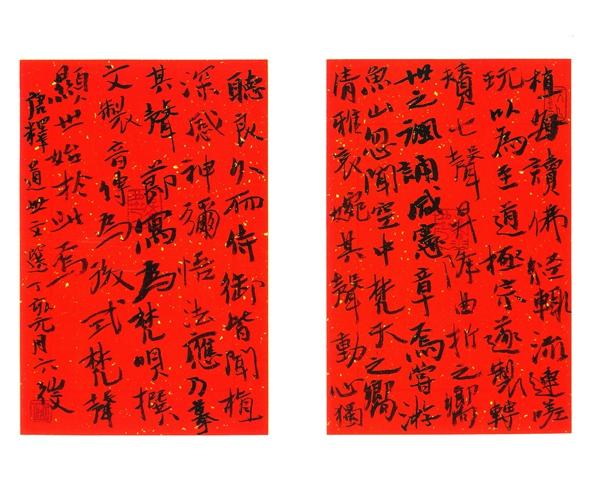 植每讀佛經輒流連嗟
玩以為至道極宗遂製轉
讚七聲昇降曲折之響
世之諷誦咸憲章焉嘗游
魚山忽聞空中梵天之響
清雅哀婉其聲動心獨
聽良久而侍御皆聞植
深感神彌悟法應乃摹
其聲節寫為梵唄撰
文製音傳為後式梵聲
顯世始於此焉
唐釋道世文選丁亥元月六